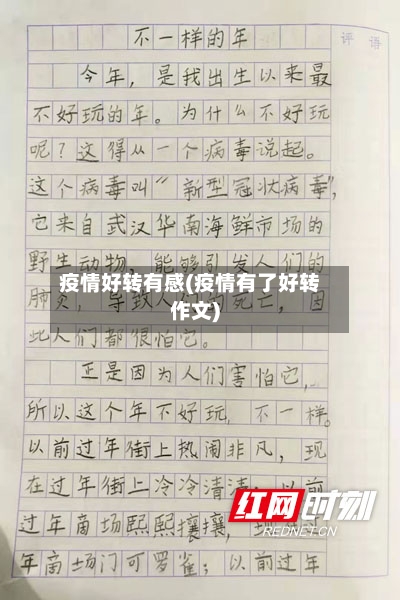 不一样的年
评语
今年，是我出生以来最
不好玩的年。为什么不好玩
呢？这得从一个病毒说起。
这个病毒叫“新型冠状病毒”，
它来自武汉华南海鲜市场的
野生动物，能够引发人们的
疫情好转有感(疫情有了好转
作文)
肺炎，导致人们的死亡，因
此人们都很怕它。
正是因为人们害怕它，
所以这个年不好玩，不一样。
以前过年街上热闹非凡，现
在过年街上冷冷清清；以前
过年商场熙熙攘攘，
红网时刻
REDNET.CN
年商场门可罗雀；以前过年